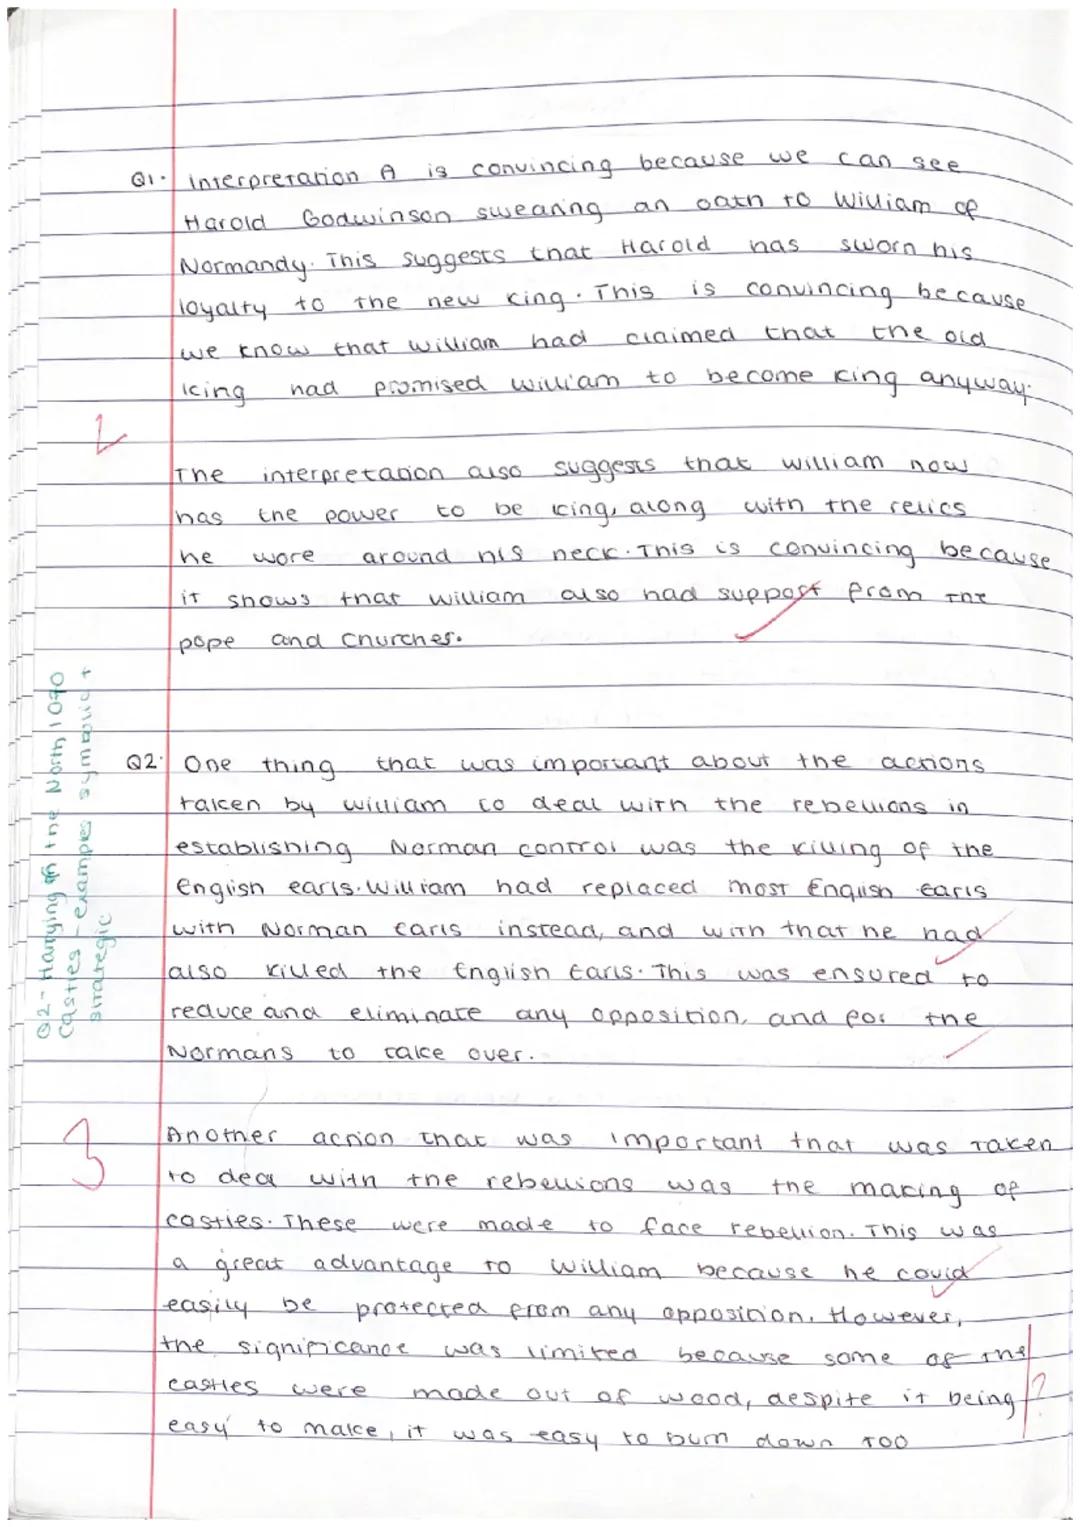 Q1. Interpretation A is convincing because we can see
Harold Godwinson swearing an oath to William of
Normandy. This suggests that Harold has sworn his
loyalty to the new king. This is convincing because
we know that william had claimed that the old
king had promised william to become king anyway.
2
The interpretation also suggests that william now
has the power to be king, along with the relics
he wore around his neck. This is convincing because
it shows that william also had support from the
pope and Churches.
Q2 - Harrying of the North 1070
Castles - examples symbolic +
strategic
Q2. One thing that was important about the actions
taken by william to deal with the rebellions in
establishing Norman control was the killing of the
English earls. William had replaced most English earls
with Norman earls instead, and with that he had
also killed the English Earls. This was ensured to
reduce and eliminate any opposition, and for the
Normans to take over.
3
Another action that was important that was taken
to deal with the rebellions was the making of
castles. These were made to face rebellion. This was
a great advantage to william because he could
easily be protected from any opposition. However,
the significance was limited because some of the
castles were made out of wood, despite it being ?
easy to make, it was easy to burn down too